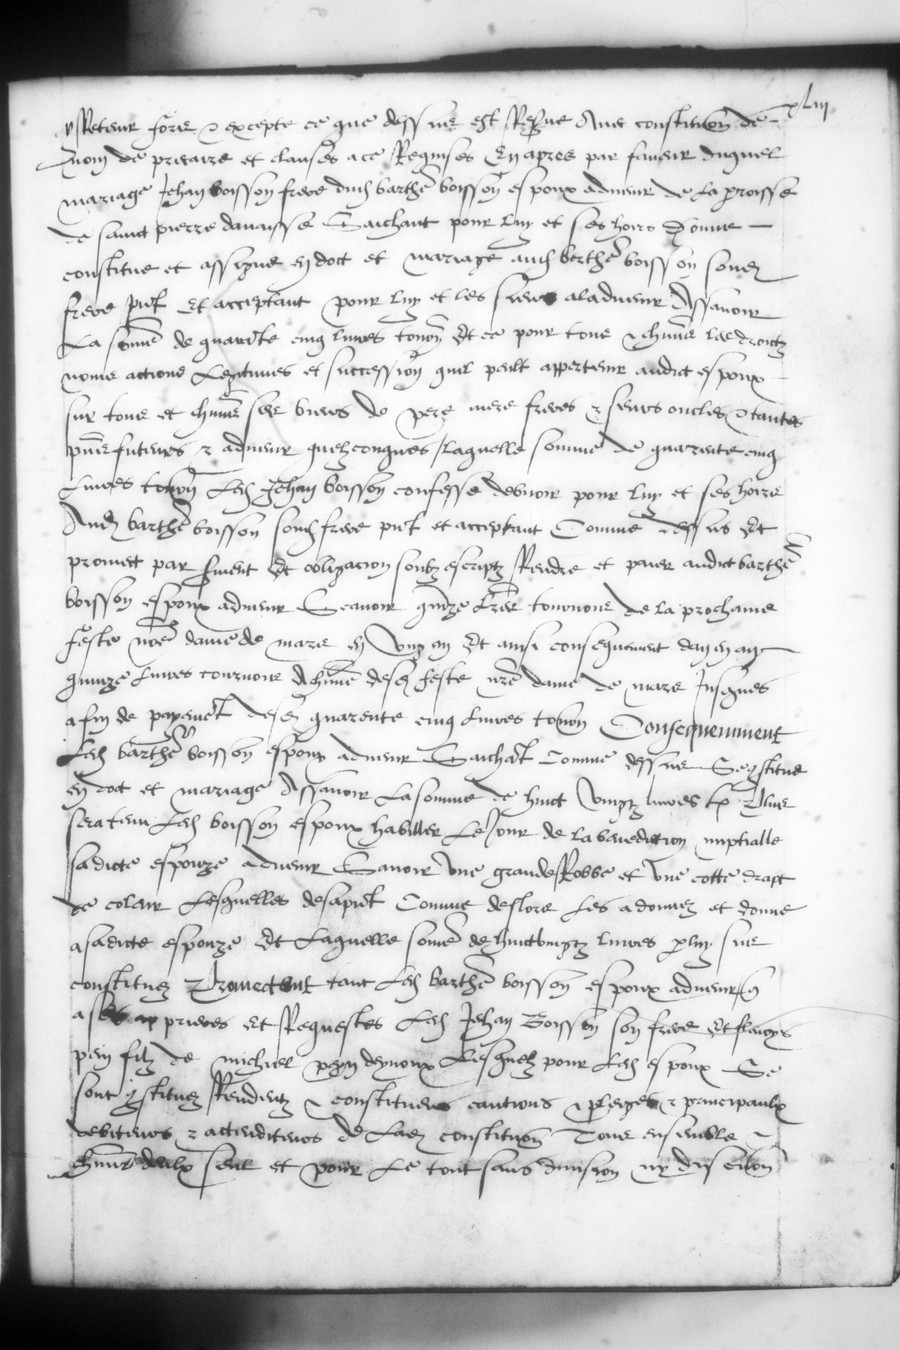 xLiii
Retenir fors & excepte ce que dessus est Reserve Avec constitution de
nom de precaire et clauses a ce Requises En apres par faveur duquel
mariage Jehan boisson frere dud barthe boisson espoux advenir de La proisse
de sainct pierre Saichant pour luy et ses hoirs donne
constitue et assigne en dot et mariage aud berthe boisson soned
frere pnt Et acceptant pour luy et les siens aladvenir Assavoir
La somme de quarate cinq livres tourn Et ce pour tous & chune Les droictz
noms actions Legitimes et succession quil peult appertenir audict espoux
sur tous et chune ses biens de pere mere freres & seurs oncles & tantes
pns futeurs & advenir quelzconques Laquelle somme de quarente cinq
Livres tourn Led Jehan boisson confesse debvoir pour luy et ses hoirs
Aud barthe boisson soud frere pnt et acceptant Comme dessus Et
promect par sment Et obligacion soubz escriptz Rendre et paier audict barthe
boisson espoux advenir Scavoir quize Livres tournois de la prochaine
feste nre dame de mars en ung an Et ainsi consequement dan en an
quinze Livres tournois A chune desd feste nre dame de mars Jusques
a fin de payemet desd quarente cinq Livres tourn Consequemment
Led barthe boisson espoux advenir Saichat Comme dessus Se 9stitue
en dot et mariage Assavoir La somme de huict vingtz livres tz Plus
sera tenu Led boisson espoux habiller Le Jour de la benediction nuptialle
sadicte espouze advenir Scavoir une grande Robbe et une cotte drapt
de colair Lesquelles desapnt Comme deslors Les a donnez et donne
a sadicte espouze Et Laquelle some de huictvingtz livres pluy sus
constituez Promectent tant Led barthe boisson espoux advenir
a ses prieres et Requestes Led Jehan Boisson son frere Et
peyn filz de michiel peyn Lesquelz pour Led espoux Se
sont 9stituez Rendentz & constituens cautions & pleiges & principaulx
debiteurs & actenditeurs de Lad constitution Tous ensemble &
chun deulx seul et pour Le tout sans division ny discution